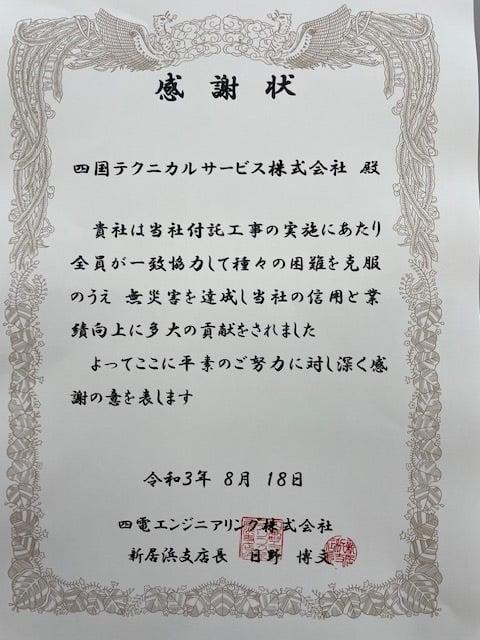 感謝状
四国テクニカルサービス株式会社 殿
貴社は当社付託工事の実施にあたり
全員が一致協力して種々の困難を克服
のうえ 無災害を達成し当社の信用と業
績向上に多大の貢献をされました
よってここに平素のご努力に対し深く感
謝の意を表します
令和3年 8月 18日
四電エンジニアリング株式会社
新居浜支店長 日野 博文